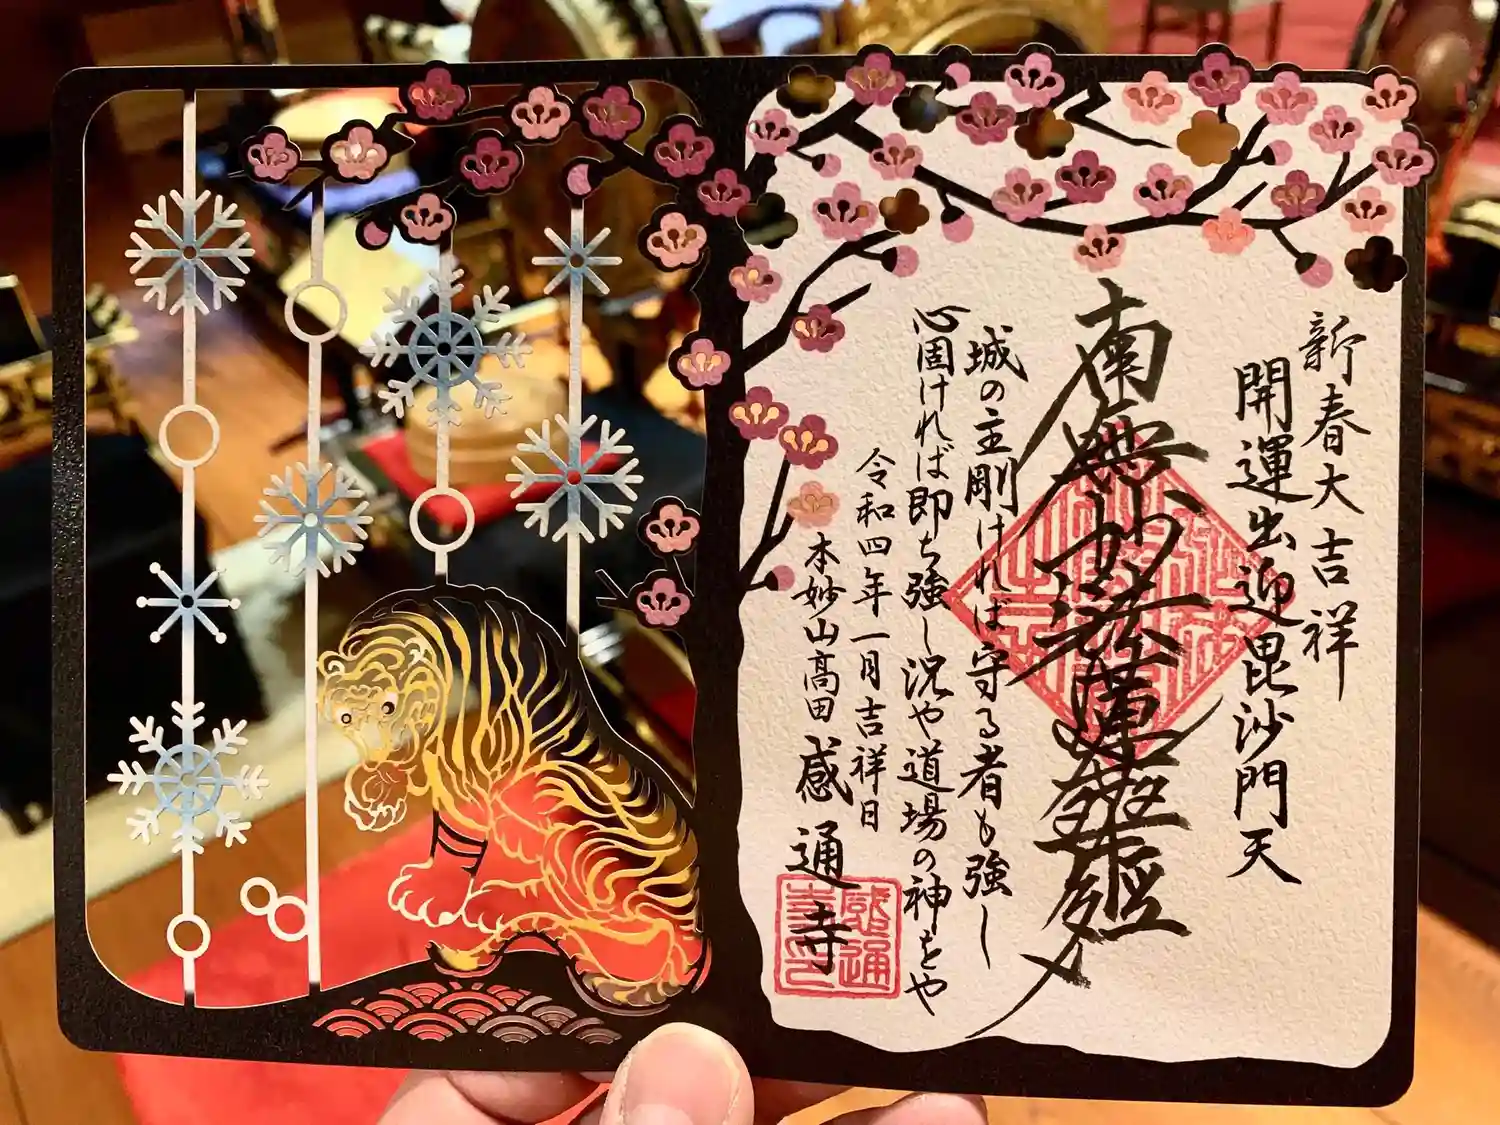 新春大吉祥
開運出迎毘沙門天
南無妙法蓮華経
城の主剛ければ守る者も強し
心固ければ即ち強し況や道場の神をや
令和四年一月吉祥日
本妙山高田感通寺
感通寺印